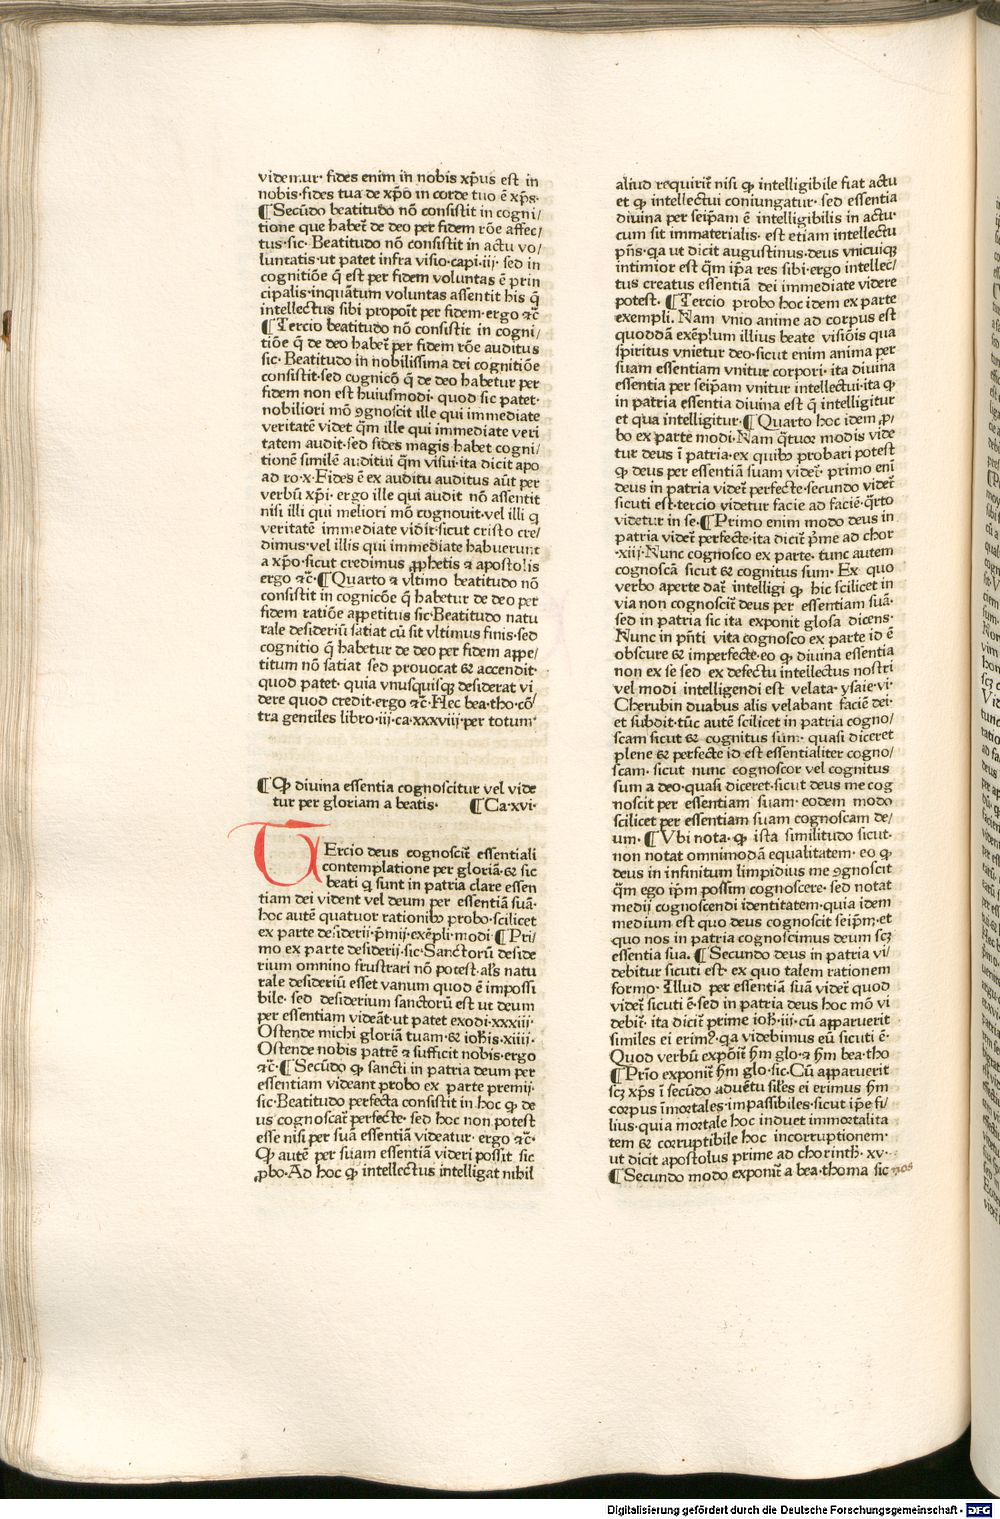 videm.ur· fides enim in nobis xp̄us est in
nobis·fides tua de xp̄o in corde tuo ē xp̄s·
¶Secūdo beatitudo nō consistit in cogni/
tione que habet̄ de deo per fidem rōe affec/
tus·sic· Beatitudo nō consistit in actu vo/
luntatis·ut patet infra visio·capi·iij· sed in
cognitiōe q̄ est per fidem voluntas ē prin
cipalis·inquātum voluntas assentit his q̄
intellectus sibi propoit̄ per fidem·ergo ⁊c̄
¶Tercio beatitudo nō consistit in cogni/
tiōe q̄ de deo habet̄ per fidem rōe auditus
sic· Beatitudo in nobilissima dei cognitiōe
consistit·sed cognicō q̄ de deo habetur per
fidem non est huiusmodi· quod sic patet·
nobiliori mō ꝯgnoscit ille qui immediate
veritatē videt q̄m ille qui immediate veri
tatem audit·sed fides magis habet cogni/
tionē similē auditui q̄m visui·ita dicit apo
ad ro·x·Fides ē ex auditu auditus aūt per
verbū xp̄i· ergo ille qui audit nō assentit
nisi illi qui meliori mō cognouit·vel illi q
veritatē immediate vidit·sicut cristo cre/
dimus·vel illis qui immediate habuerunt
a xp̄o·sicut credimus ꝓphetis ⁊ apostolis
ergo ⁊c̄·¶Quarto ⁊ vltimo beatitudo nō
consistit in cognicōe q̄ habetur de deo per
fidem ratiōe appetitus sic·Beatitudo natu
rale desideriū satiat cū sit vltimus finis·sed
cognitio q̄ habetur de deo per fidem appe/
titum nō satiat sed prouocat & accendit·
quod patet· quia vnusquisqꝫ desiderat vi
dere quod credit·ergo ⁊c̄·Hec bea·tho·cō/
tra gentiles libro·iij·ca·xxxviij·per totum·
¶Qꝫ diuina essentia cognoscitur vel vide
tur per gloriam a beatis· ¶Ca·xvi·
TErcio deus cognoscit̄ essentiali
contemplatione per gloriā·& sic
beati q sunt in patria clare essen
tiam dei vident vel deum per essentiā suā·
hoc autē quatuor rationibꝫ probo·scilicet
ex parte desiderij·p̄mij·exēpli·modi·¶Pri/
mo ex parte desiderij·sic·Sanctorū deside
rium omnino frustrari nō potest·al̄s natu
rale desideriū esset vanum quod ē impossi
bile· sed desiderium sanctorū est ut deum
per essentiam videāt·ut patet exodi·xxxiij·
Ostende michi gloriā tuam·& ioh̄is·xiiij·
Ostende nobis patrē ⁊ sufficit nobis·ergo
⁊c̄·¶Secūdo qꝫ sancti in patria deum per
essentiam videant probo ex parte premij·
sic·Beatitudo perfecta consistit in hoc qꝫ de
us cognoscat̄ perfecte· sed hoc non potest
esse nisi per suā essentiā videatur· ergo ⁊c̄·
Qꝫ autē per suam essentiā videri possit sic
ꝓbo·Ad hoc qꝫ intellectus intelligat nihil
aliud requirit̄ nisi qꝫ intelligibile fiat actu
et qꝫ intellectui coniungatur· sed essentia
diuina per seip̄am ē intelligibilis in actu·
cum sit immaterialis· est etiam intellectu
p̄ns·qa ut dicit augustinus·deus vnicuiqꝫ
intimior est q̄m ip̄a res sibi·ergo intellec/
tus creatus essentiā dei immediate videre
potest· ¶Tercio probo hoc idem ex parte
exempli· Nam vnio anime ad corpus est
quoddā exēplum illius beate visiōis qua
spiritus vnietur deo·sicut enim anima per
suam essentiam vnitur corpori· ita diuina
essentia per seip̄am vnitur intellectui·ita qꝫ
in patria essentia diuina est q̄ intelligitur
et qua intelligitur·¶Quarto hoc idem ꝓ/
bo ex parte modi·Nam q̄tuoꝛ modis vide
tur deus ī patria·ex quibꝫ probari potest
qꝫ deus per essentiā suam videt̄· primo enī
deus in patria videt̄ perfecte·secundo videt̄
sicuti est·tercio videtur facie ad faciē·q̄rto
videtur in se·¶Primo enim modo deus in
patria videt̄ perfecte·ita dicit̄ p̄me ad chor
·xiij·Nunc cognosco ex parte· tunc autem
cognoscā sicut & cognitus sum· Ex quo
verbo aperte dat̄ intelligi qꝫ hic scilicet in
via non cognoscit̄ deus per essentiam suā·
sed in patria sic ita exponit glosa dicens·
Nunc in p̄nti vita cognosco ex parte id ē
obscure & imperfecte·eo qꝫ diuina essentia
non ex se sed ex defectu intellectus nostri
vel modi intelligendi est velata· ysaie·vi·
Cherubin duabus alis velabant faciē dei·
et subdit·tūc autē scilicet in patria cogno/
scam sicut & cognitus sum· quasi diceret
plene & perfecte id est essentialiter cogno/
scam· sicut nunc cognoscor vel cognitus
sum a deo·quasi diceret·sicut deus me cog
noscit per essentiam suam· eodem modo
scilicet per essentiam suam cognoscam de/
um· ¶Vbi nota· qꝫ ista similitudo sicut·
non notat omnimodā equalitatem· eo qꝫ
deus in infinitum limpidius me ꝯgnoscit
q̄m ego ip̄m possim cognoscere· sed notat
medij cognoscendi identitatem·quia idem
medium est quo deus cognoscit seip̄m·et
quo nos in patria cognoscimus deum scꝫ
essentia sua· ¶Secundo deus in patria vi/
debitur sicuti est· ex quo talem rationem
formo· Illud per essentiā suā videt̄ quod
videt̄ sicuti ē·sed in patria deus hoc mō vi
debit̄· ita dicit̄ prime ioh̄·iij·cū apparuerit
similes ei erimꝰ·qa videbimus eū sicuti ē·
Quod verbū expōit̄ s̄m glo·⁊ s̄m bea·tho
¶Prīo exponit̄ s̄m glo·sic·Cū apparuerit
scꝫ xp̄s ī secūdo aduētu siles ei erimus s̄m
corpus īmortales·impassibiles·sicut ip̄e fi/
lius·quia mortale hoc induet immortalita
tem & corruptibile hoc incorruptionem·
ut dicit apostolus prime ad chorinth·xv·
¶Secundo modo exponit̄ a bea·thoma sic
nos
Digitalisierung gefördert durch die Deutsche Forschungsgemeinschaft - DFG